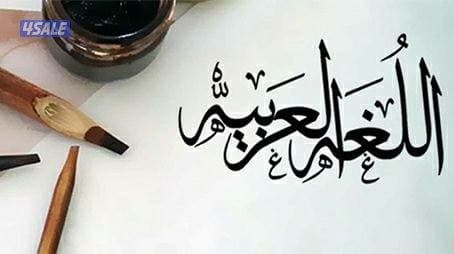 4SALE
اللُغَه العَرَبيه